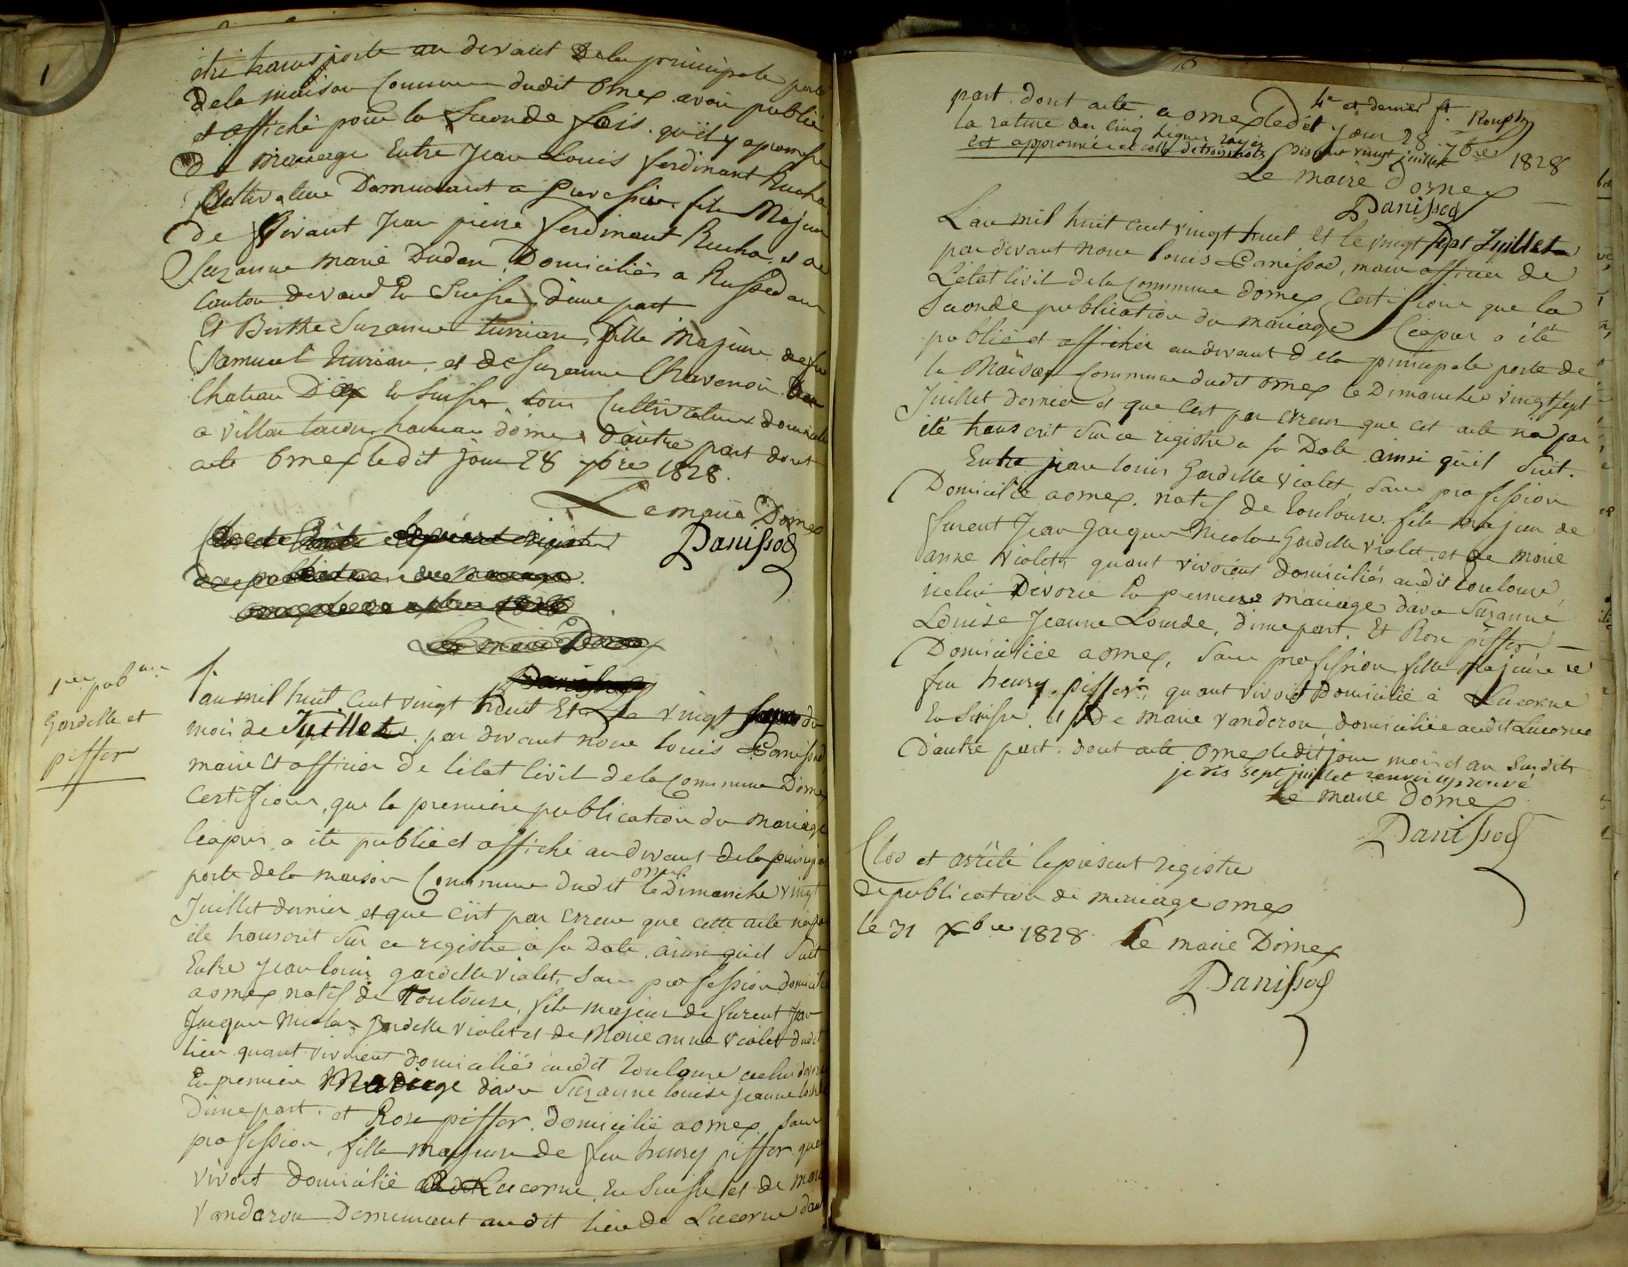 1
être transporté au devant de la principale porte
de la maison Commune dudit Ornex avoir publié
et affiché pour la Seconde fois qu'il y a promesse
de mariage Entre Jean Louis ferdinant Rucha
Cultivateur Demeurant a fils Majeur
de Vivant Jean pierre ferdinant Rucha, et de
Suzanne marie Dudan, Domiciliés a
Canton de vaud En Suisse, d'une part
Et Suzanne turrian, fille majeure de feu
Samuel turrian, et de Suzanne
Chateau D'Œx En Suisse tous Cultivateurs
a villa hameau d'ornex d'autre part dont
acte Ornex ledit jour 28 7bre 1828.
Le maire D'ornex
Danissod
1ere pubon
Gardelle et
piffer
L'an mil huit Cent vingt huit Et Le vingt du
mois de Juillet par devant nous louis Danissod
maire Et officier De l'état Civil de la Commune D'ornex
Certifions, que la premiere publication du Mariage
Ci après, a été publié et affiché au devant de la principale
porte de la maison Commune dudit ornex le Dimanche vingt
Juillet dernier, et que c'est par Erreur que cette acte n'a pas
été transcrit Sur ce registre à sa Date, ainsi qu'il Suit
Entre Jean louis gardelle violet, Sans profession domicilié
a ornex natif de Toulouse, fils majeur de furent Jean
Jacque Nicolas Gardelle violet et de Marie anne violet dudit
lieu quant vivoient domiciliés audit Toulouse
En premier Mariage d'avec Suzanne louise jeanne
D'une part. et Rose piffer, domicilié a ornex, Sans
profession, fille majeure de feu henry piffer quand
vivoit domicilié Lucerne, En Suisse et de marie
vanderon Demeurant audit lieu de Lucerne d'autre
part. dont acte a ornex ledit jour 28 7bre 1828
4e et dernier ft.
la rature des cinq lignes rayés
est approuvée et celle de trois mots
Le maire d'ornex
Danissod
L'an mil huit cent vingt huit Et le vingt sept Juillet
par devant nous louis Danissod, maire officier de
L'etat Civil de la Commune d'ornex Certifions que la
Seconde publication du mariage Ci apres a été
publié et affiché au devant de la principale porte de
la Maison Commune dudit ornex le Dimanche vingt sept
Juillet dernier et que C'est par Erreur que cet acte n'a pas
été transcrit Sur ce registre a sa Date ainsi qu'il Suit.
Entre jean louis Gardelle violet, Sans profession
Domicilié a ornex, natif de Toulouse, fils majeur de
furent Jean Jacque Nicolas Gardelle violet, et de marie
anne violet, quant vivoient domiciliés audit toulouse,
icelui Divorcé En premiere mariage d'avec Suzanne
Louise Jeanne Lourde, d'une part. Et Rose piffer
Domiciliée a ornex, Sans profession fille majeure de
feu henry piffer, quant vivoit Domicilié à Lucerne
En Suisse, et De marie vanderon, domiciliée audit Lucerne
D'autre part. dont acte Ornex ledit jour mois et an Susdits
je dis sept juillet renvoi approuvé
Le maire d'ornex
Danissod
Clos et arrêté le présent registre
de publication de mariage ornex
le 31 Xbre 1828. Le maire D'ornex
Danissod